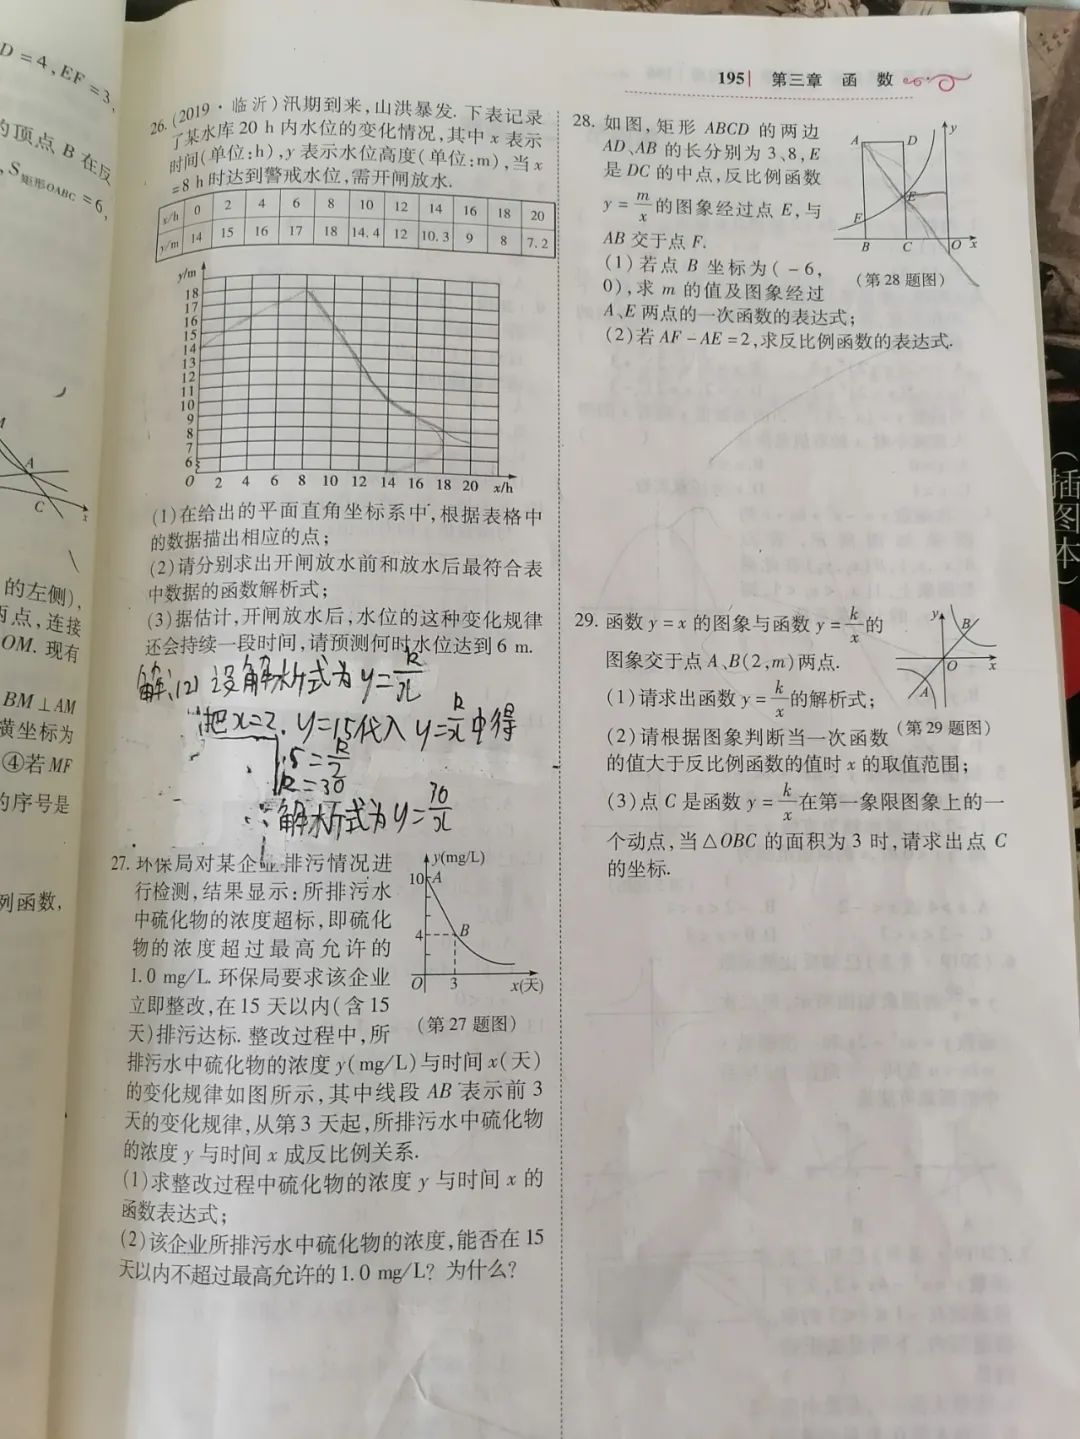 D=4,EF=3,
的顶点 B 在反
,S矩形OABC=6,
A
C
x
的左侧),
两点,连接
OM. 现有
BM⊥AM
横坐标为
④若 MF
的序号是
列函数,
195| 第三章 函 数
26. (2019·临沂)汛期到来,山洪暴发. 下表记录
了某水库 20 h 内水位的变化情况,其中 x 表示
时间(单位:h),y 表示水位高度(单位:m),当 x
=8 h 时达到警戒水位,需开闸放水.
x/h 0 2 4 6 8 10 12 14 16 18 20
y/m 14 15 16 17 18 14.4 12 10.3 9 8 7.2
y/m
18
17
16
15
14
13
12
11
10
9
8
7
6
O 2 4 6 8 10 12 14 16 18 20 x/h
(1)在给出的平面直角坐标系中,根据表格中
的数据描出相应的点;
(2)请分别求出开闸放水前和放水后最符合表
中数据的函数解析式;
(3)据估计,开闸放水后,水位的这种变化规律
还会持续一段时间,请预测何时水位达到 6 m.
解:(2)设解析式为y=k/x
把x=2, y=15代入 y=k/x中得
15=k/2
k=30
∴解析式为y=30/x
27. 环保局对某企业排污情况进
行检测,结果显示:所排污水
中硫化物的浓度超标,即硫化
物的浓度超过最高允许的
1.0 mg/L. 环保局要求该企业
立即整改,在 15 天以内(含 15
天)排污达标. 整改过程中,所
排污水中硫化物的浓度 y(mg/L)与时间 x(天)
的变化规律如图所示,其中线段 AB 表示前 3
天的变化规律,从第 3 天起,所排污水中硫化物
的浓度 y 与时间 x 成反比例关系.
(1)求整改过程中硫化物的浓度 y 与时间 x 的
函数表达式;
(2)该企业所排污水中硫化物的浓度,能否在 15
天以内不超过最高允许的 1.0 mg/L? 为什么?
y(mg/L)
10 A
4 B
O 3 x(天)
(第 27 题图)
28. 如图,矩形 ABCD 的两边
AD、AB 的长分别为 3、8,E
是 DC 的中点,反比例函数
y=m/x的图象经过点 E,与
AB 交于点 F.
(1)若点 B 坐标为(-6,
0),求 m 的值及图象经过
A、E 两点的一次函数的表达式;
(2)若 AF-AE=2,求反比例函数的表达式.
y
A D
E
F
B C O x
(第 28 题图)
29. 函数 y=x 的图象与函数 y=k/x的
图象交于点 A、B(2,m)两点.
(1)请求出函数 y=k/x的解析式;
(2)请根据图象判断当一次函数
的值大于反比例函数的值时 x 的取值范围;
(3)点 C 是函数 y=k/x在第一象限图象上的一
个动点,当△OBC 的面积为 3 时,请求出点 C
的坐标.
y
B
O x
A
(第 29 题图)
(插图本)